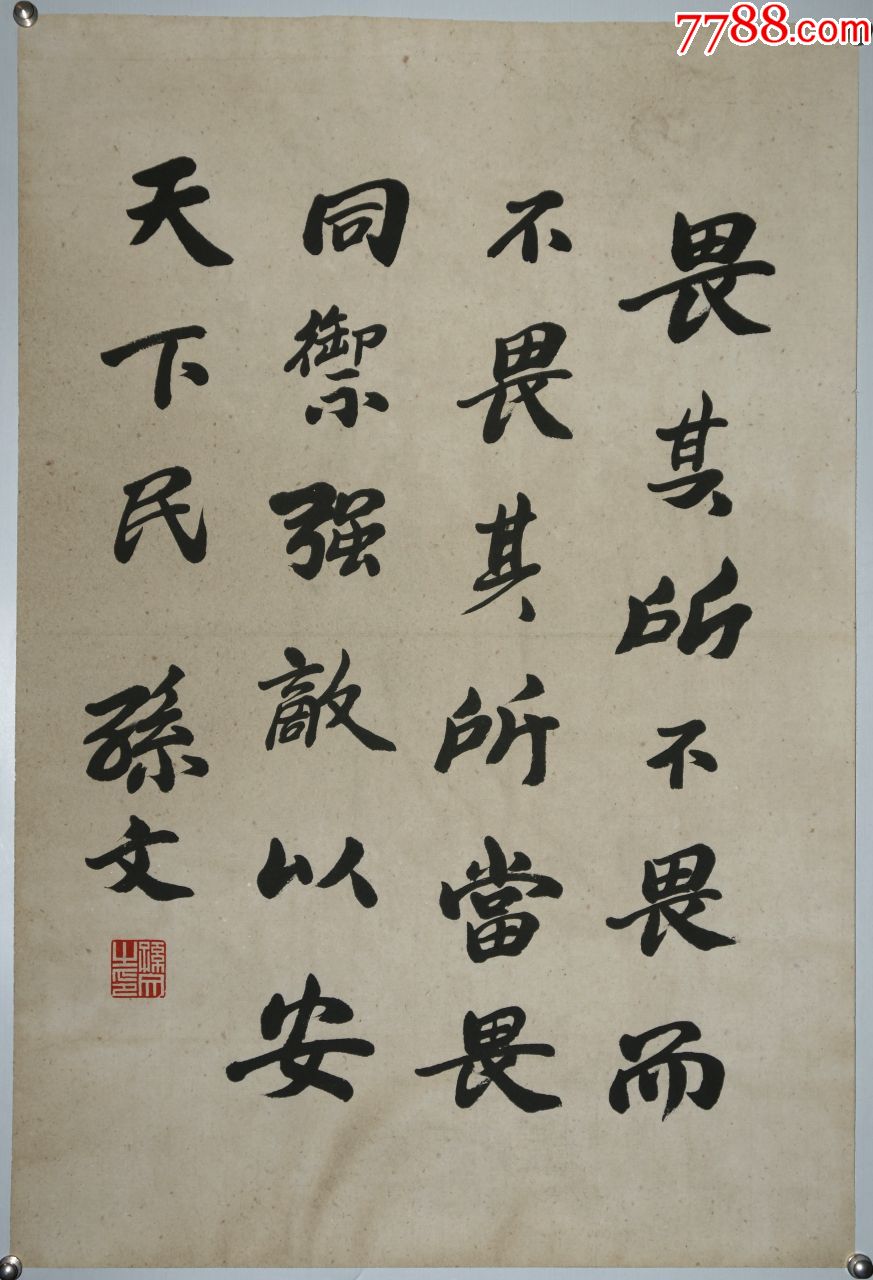 7788.com
畏其所不畏而
不畏其所當畏
同禦强敵以安
天下民 孫文
孫文之印